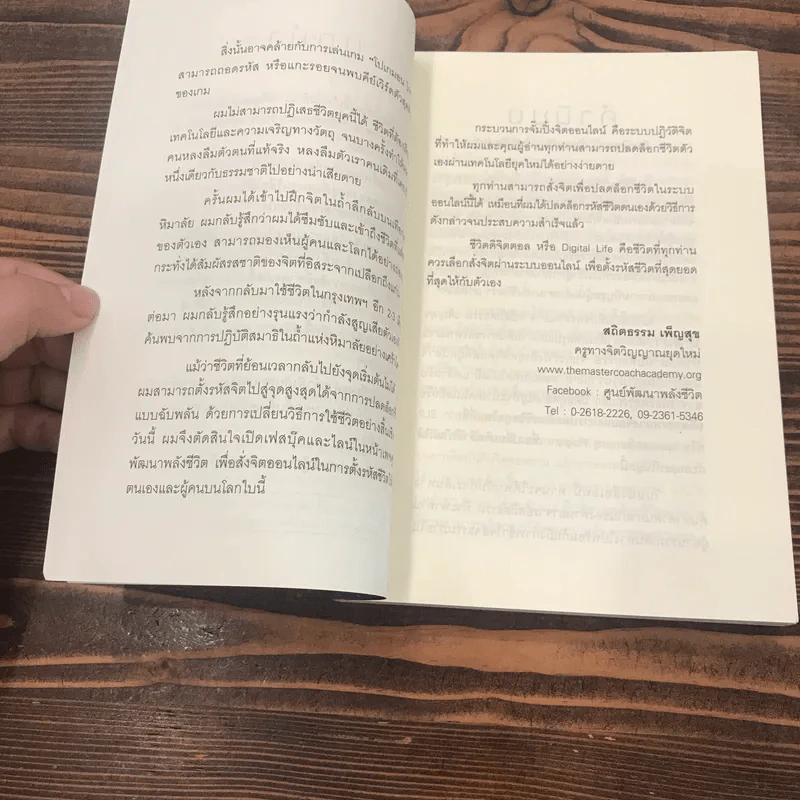 สิ่งนั้นอาจคล้ายกับการเล่นเกม "โปเกมอน
สามารถถอดรหัส หรือแกะรอยจนพบคีย์เวิร์ดตัวสุดท้าย
ของเกม
ผมไม่สามารถปฏิเสธชีวิตยุคนี้ได้ ชีวิตที่ต้องพึ่ง
เทคโนโลยีและความเจริญทางวัตถุ จนบางครั้งทำให้
คนหลงลืมตัวตนที่แท้จริง หลงลืมตัวเราคนเดิมที่เคย
หนึ่งเดียวกับธรรมชาติไปอย่างน่าเสียดาย
ครั้นผมได้เข้าไปฝึกจิตในถ้ำลึกลับบนเทือก
หิมาลัย ผมกลับรู้สึกว่าผมได้ซึมซับและเข้าถึงชีวิต
ของตัวเอง สามารถมองเห็นผู้คนและโลกได้อย่าง
กระทั่งได้สัมผัสรสชาติของจิตที่อิสระจากเปลือกถึงแก่น
หลังจากกลับมาใช้ชีวิตในกรุงเทพฯ อีก 2-3
ต่อมา ผมกลับรู้สึกอย่างรุนแรงว่ากำลังสูญเสียตัวเอง
ค้นพบจากการปฏิบัติสมาธิในถ้ำแห่งหิมาลัยอย่าง
แม้ว่าชีวิตที่ย้อนเวลากลับไปยังจุดเริ่มต้นไม่ได้
ผมสามารถตั้งรหัสจิตไปสู่จุดสูงสุดได้จากการปลดล็อก
แบบฉับพลัน ด้วยการเปลี่ยนวิธีการใช้ชีวิตอย่างสิ้นเชิง
วันนี้ ผมจึงตัดสินใจเปิดเฟสบุ๊คและไลน์ในหน้าเพจ
พัฒนาพลังชีวิต เพื่อสั่งจิตออนไลน์ในการตั้งรหัสชีวิต
ตนเองและผู้คนบนโลกใบนี้
กระบวนการจัมปิ้งจิตออนไลน์ คือระบบปฏิวัติจิต
ที่ทำให้ผมและคุณผู้อ่านทุกท่านสามารถปลดล็อกชีวิตตัว
เองผ่านเทคโนโลยียุคใหม่ได้อย่างง่ายดาย
ทุกท่านสามารถสั่งจิตเพื่อปลดล็อกชีวิตในระบบ
ออนไลน์นี้ได้ เหมือนที่ผมได้ปลดล็อกรหัสชีวิตตนเองด้วยวิธีการ
ดังกล่าวจนประสบความสำเร็จแล้ว
ชีวิตดิจิตตอล หรือ Digital Life คือชีวิตที่ทุกท่าน
ควรเลือกสั่งจิตผ่านระบบออนไลน์ เพื่อตั้งรหัสชีวิตที่สุดยอด
ที่สุดให้กับตัวเอง
สถิตธรรม เพ็ญสุข
ครูทางจิตวิญญาณยุคใหม่
www.themastercoachacademy.org
Facebook : ศูนย์พัฒนาพลังชีวิต
Tel : 0-2618-2226, 09-2361-5346